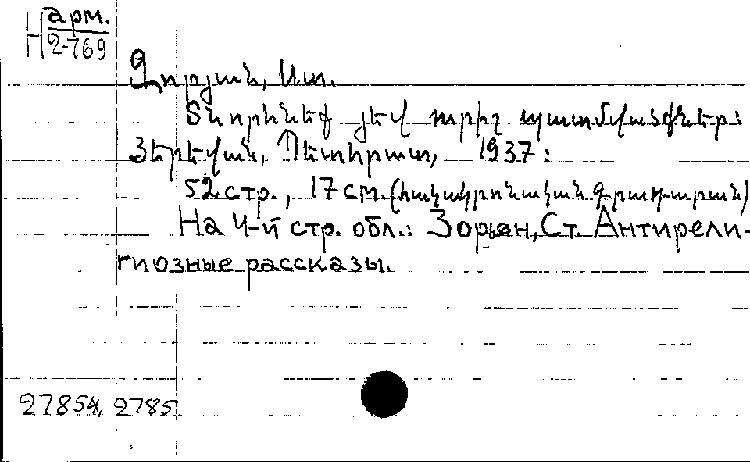 Н арм.
2-769
Զորյան, Ստ.
Տնօրհնեք յեվ ուրիշ պատմվածքներ:
Յերեվան, Պետհրատ, 1937:
52 стр., 17 см. (հակակրոնական գրադարան)
На 4-й стр. обл.: Зорьян, Ст. Антирели-
гиозные рассказы.
27854, 2785